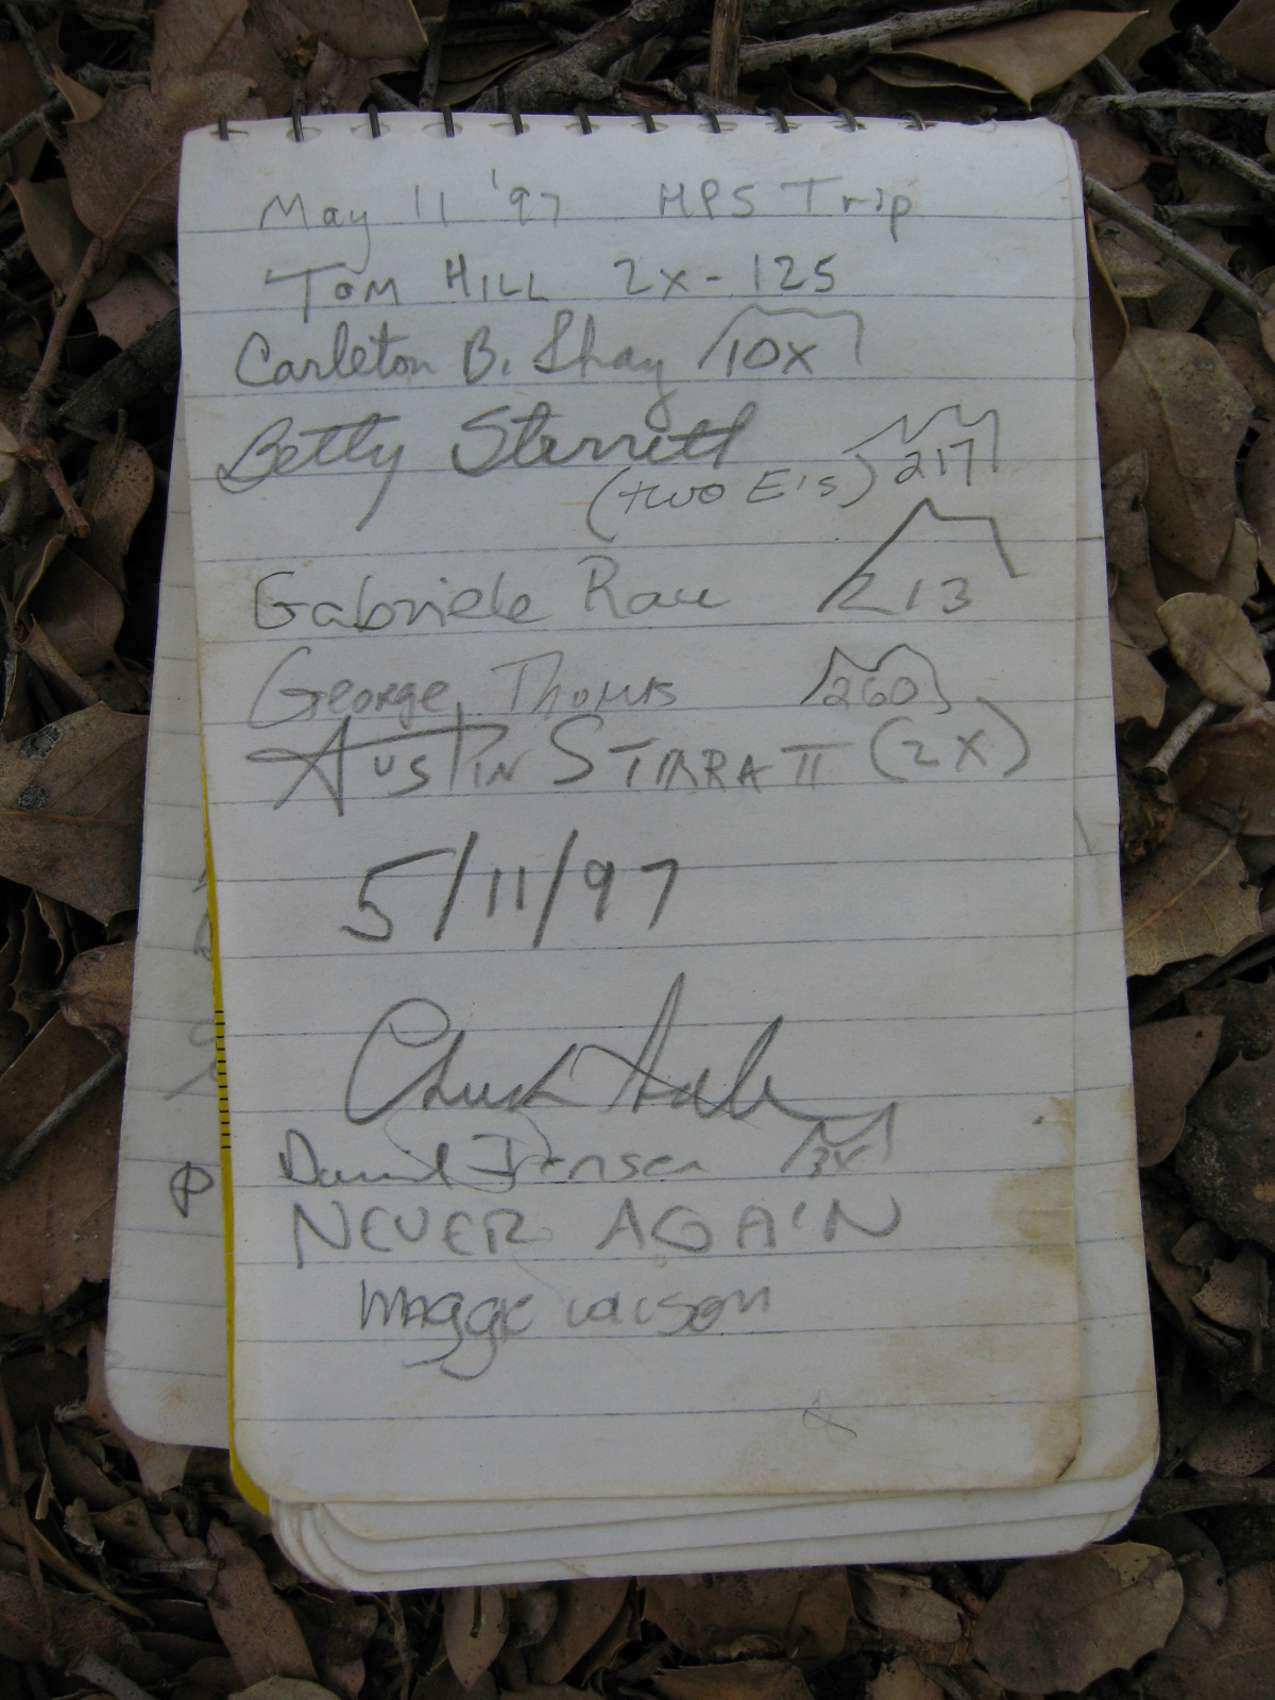 May 11 '97 HPS Trip
TOM HILL 2X - 125
Carleton B. Shay 10X
Betty Sterrett
(two E's) 217
Gabriele Rau 213
George Thomas 260
AUSTIN STARRATT (2X)
5/11/97
Chuck
Daniel Jensen 3X
NEVER AGAIN
Maggie Wilson